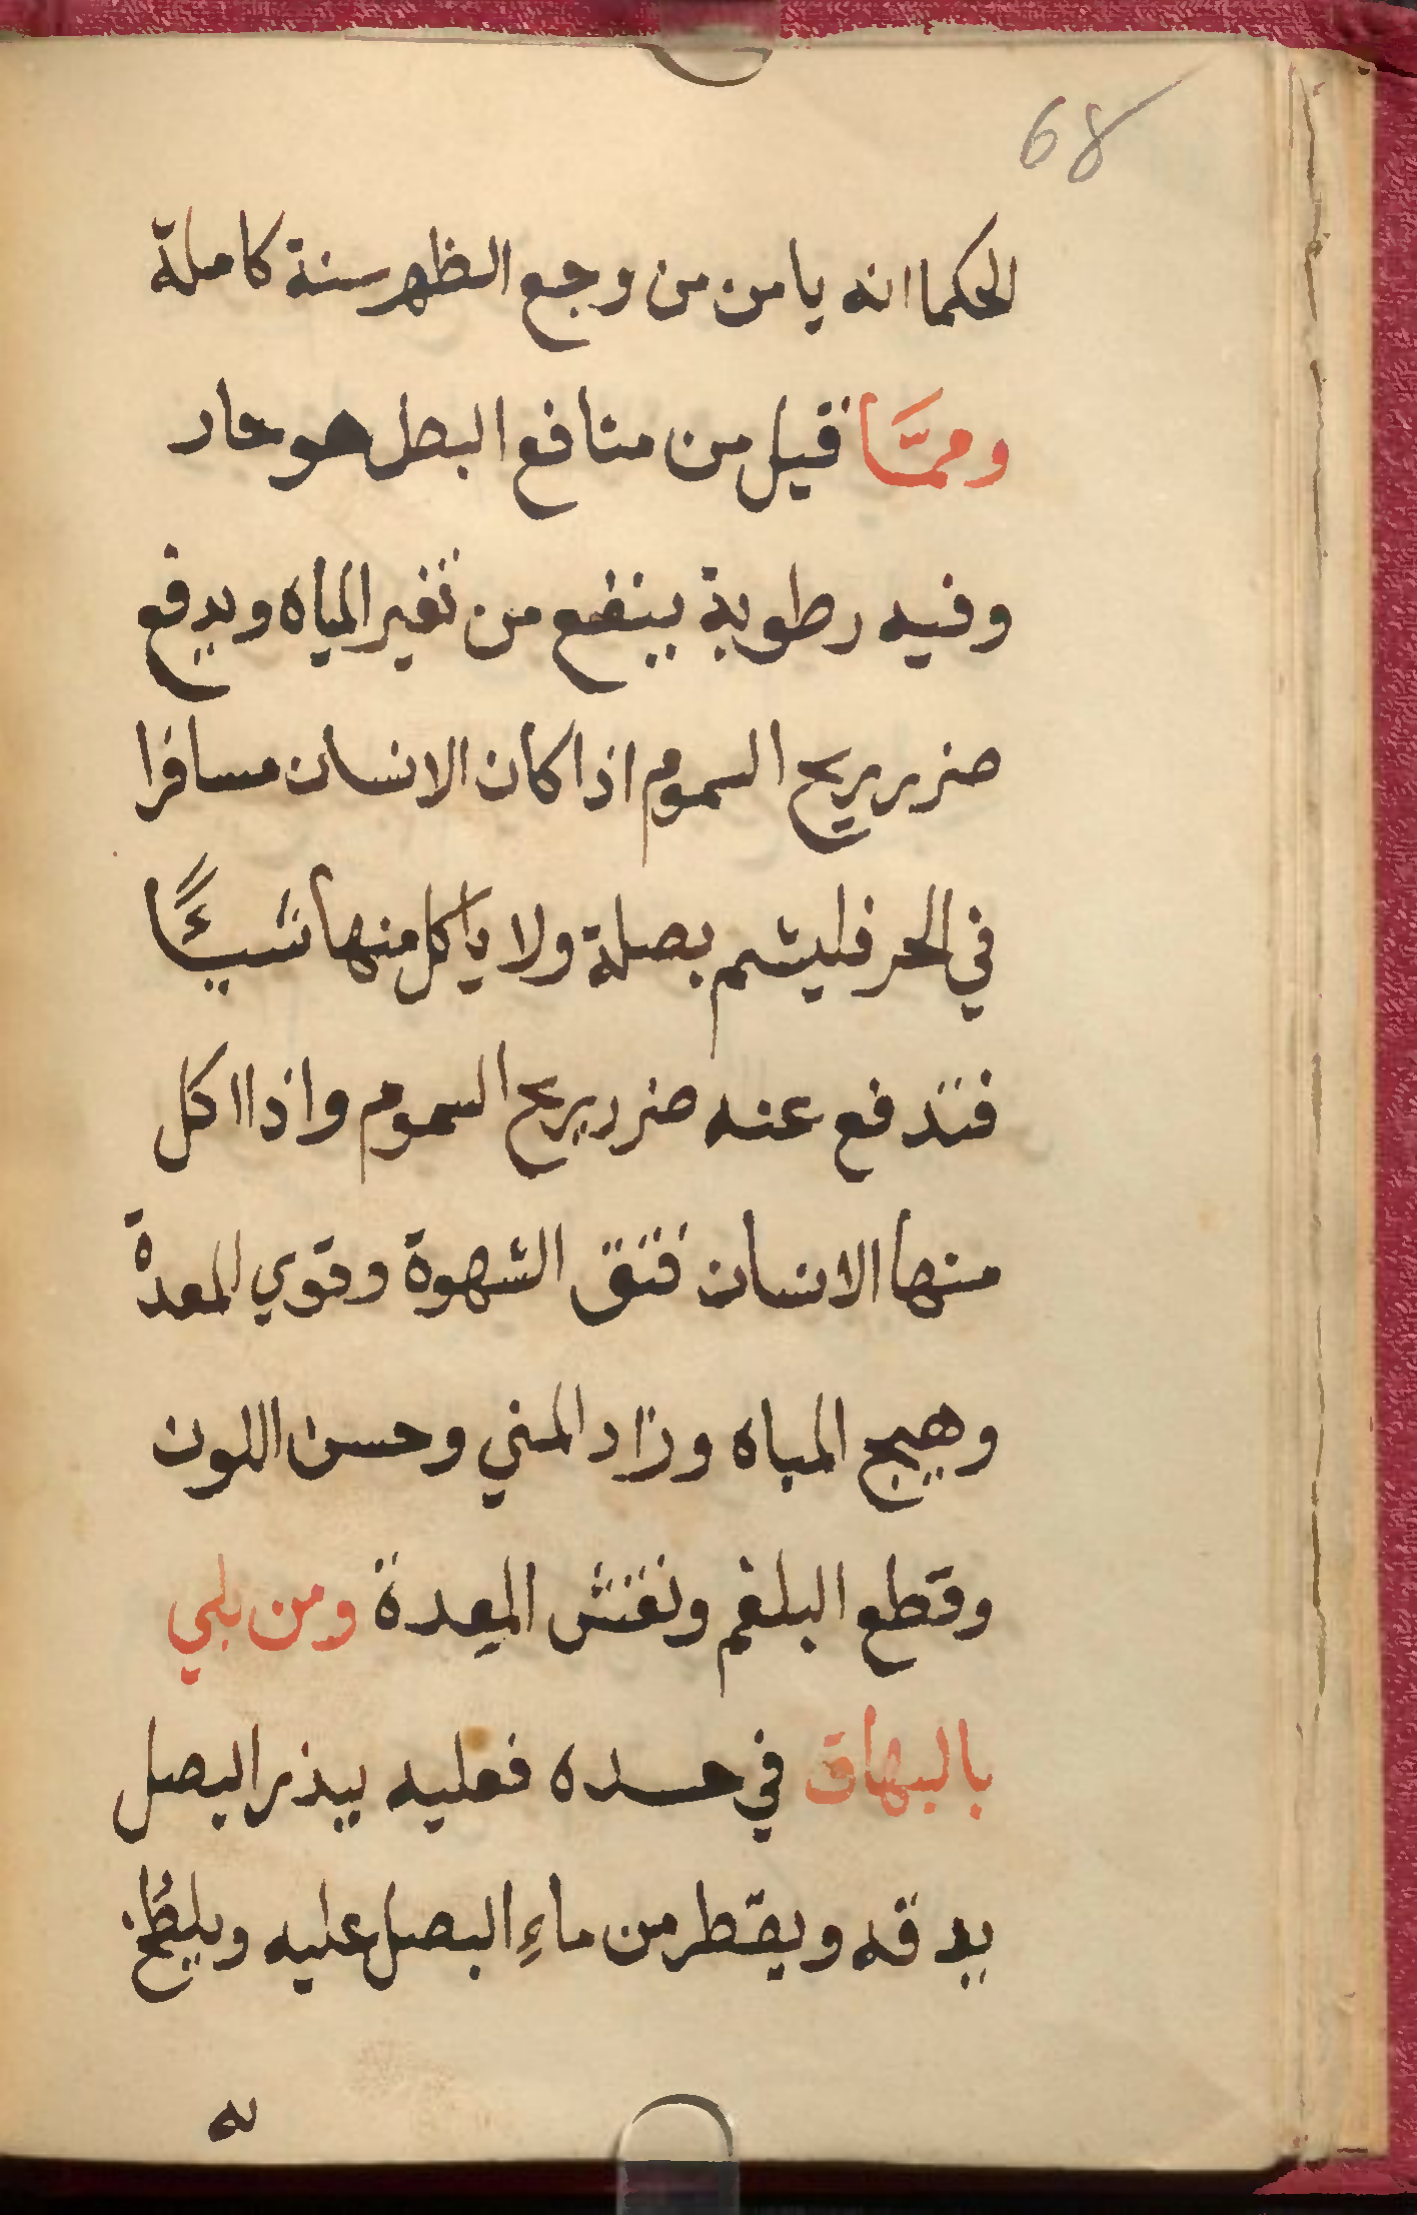 68
الحكما انه يامن من وجع الظهر سنة كاملة
وممَّا قيل من منافع البصل هو حار
وفيه رطوبة ينفع من تغير المياه ويدفع
ضرر ريح السموم اذا كان الانسان مسافرا
في الحر فليشم بصلة ولا يأكل منها شيئًا
فتدفع عنه ضرر ريح السموم واذا اكل
منها الانسان فتق الشهوة وقوي المعدة
وهيج المباه وزاد المني وحسن اللون
وقطع البلغم ونفتش المعدة ومن بلي
بالبهاق في حسده فعليه ببذر البصل
يدقه ويقطر من ماءِ البصل عليه ويلطخ
به